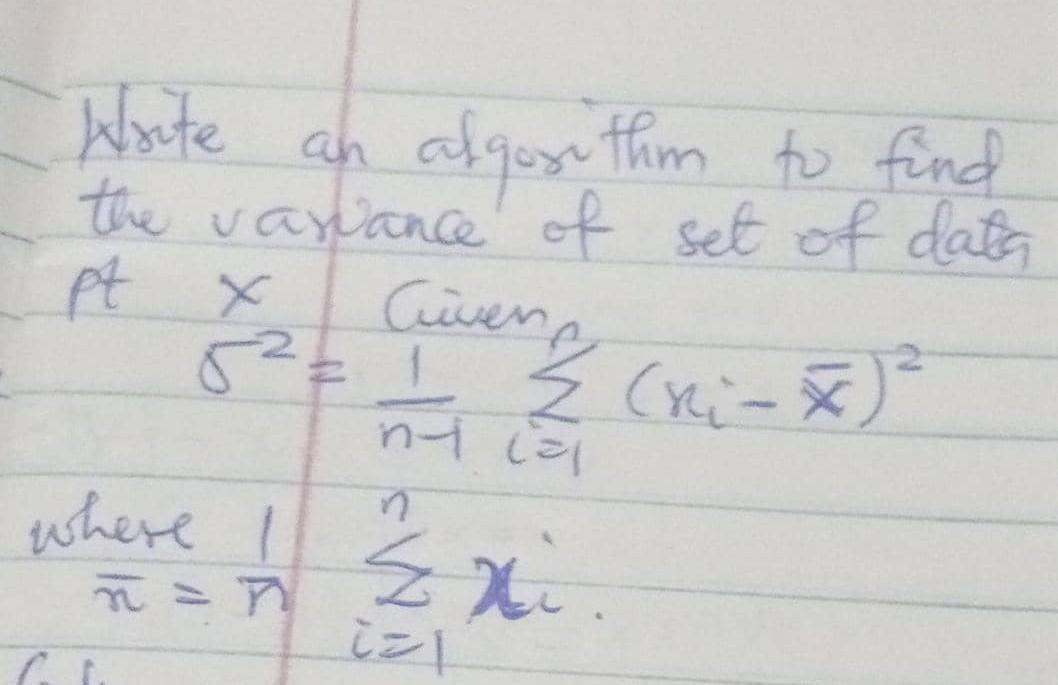 Write an algorithm to find
the variance of set of data
pt x Given
σ² = 1/n-1 n Σ i=1 (xi - x̄)²
where
x̄ = 1/n n Σ i=1 xi.